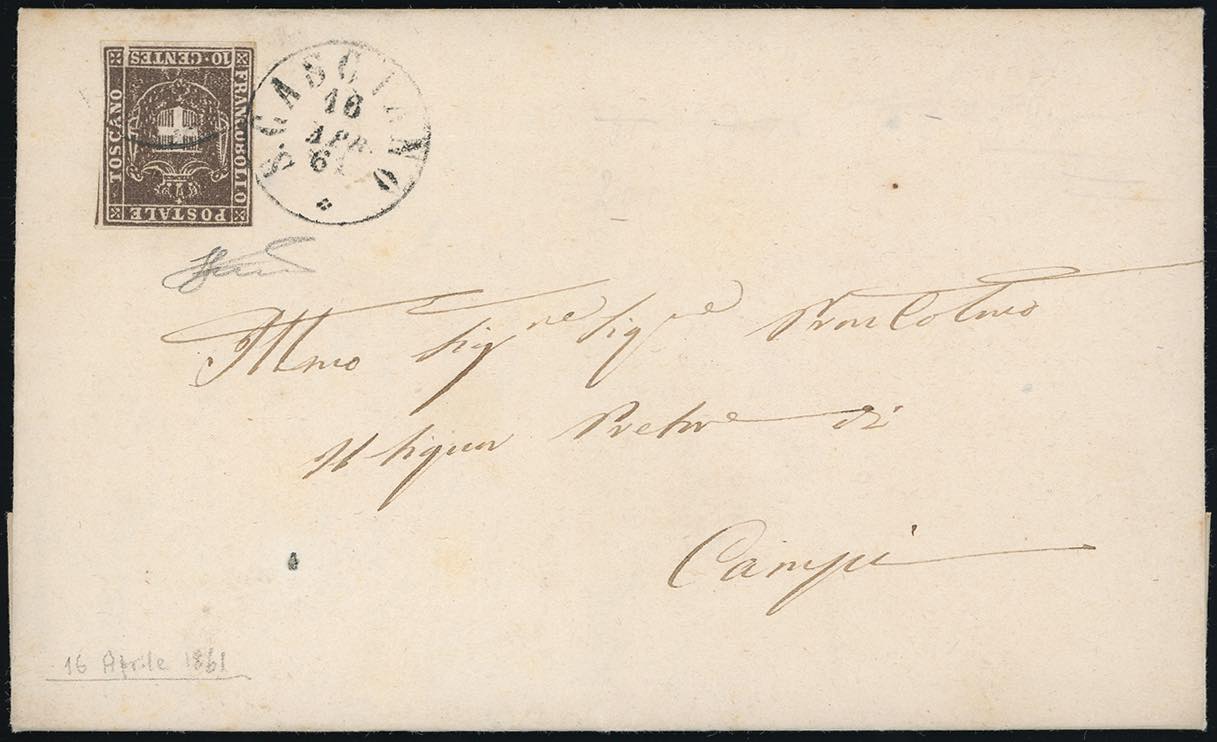 10·CENTES
FRANCOBOLLO
POSTALE
TOSCANO
S.CASCIANO
16
APR
61
Illmo Sigre Sigre Pron Colmo
Il Signor Pretore di
Campi
16 Aprile 1861